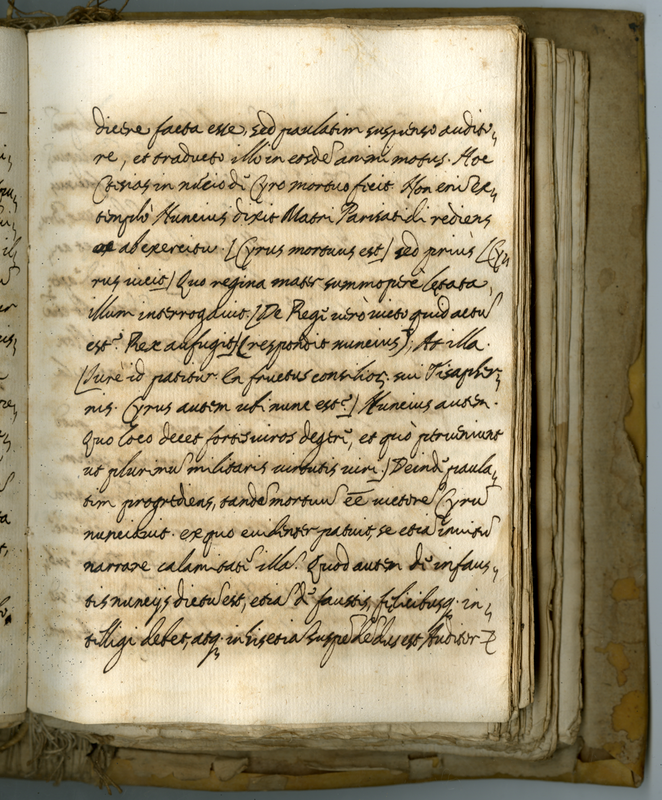 dicere facta esse, sed paulatim suspenso audito„
re, et traducto illo in eosdē animi motus. Hoc
Ctesias in nūcio dē Cyro mortuo fecit. Non enī ex„
templò Nuncius dixit Matri Parisatidi rediens
ab exercitu. [Cyrus mortuus est] sed priùs [Cy„
rus vicit] Quo regina mater summopere lętata,
illum interrogavit. [De Rege verò victo quid actū
est? Rex aufugit] (respondit nuncius); At illa.
[Iure id patitur en fructus consilioȝ. sui Tisapher„
nis. Cyrus autem ubi nunc est?] Nuncius autem.
Quo loco decet fortes viros degere, et quò perveniunt
ut plurimū militaris virtutis viri.] Deindē paula„
tim progrediens, tandē mortuū eē victore Cyrū
nunciavit. ex quo evidenter patuit, se etiā invitū
narrare calamitatē illā. Quod autem dē infaus„
tis nuncijs dictū est, etiā dē faustis, felicibusq. in„
telligi debet, atq. in his etiā suspēdēdus est Auditor